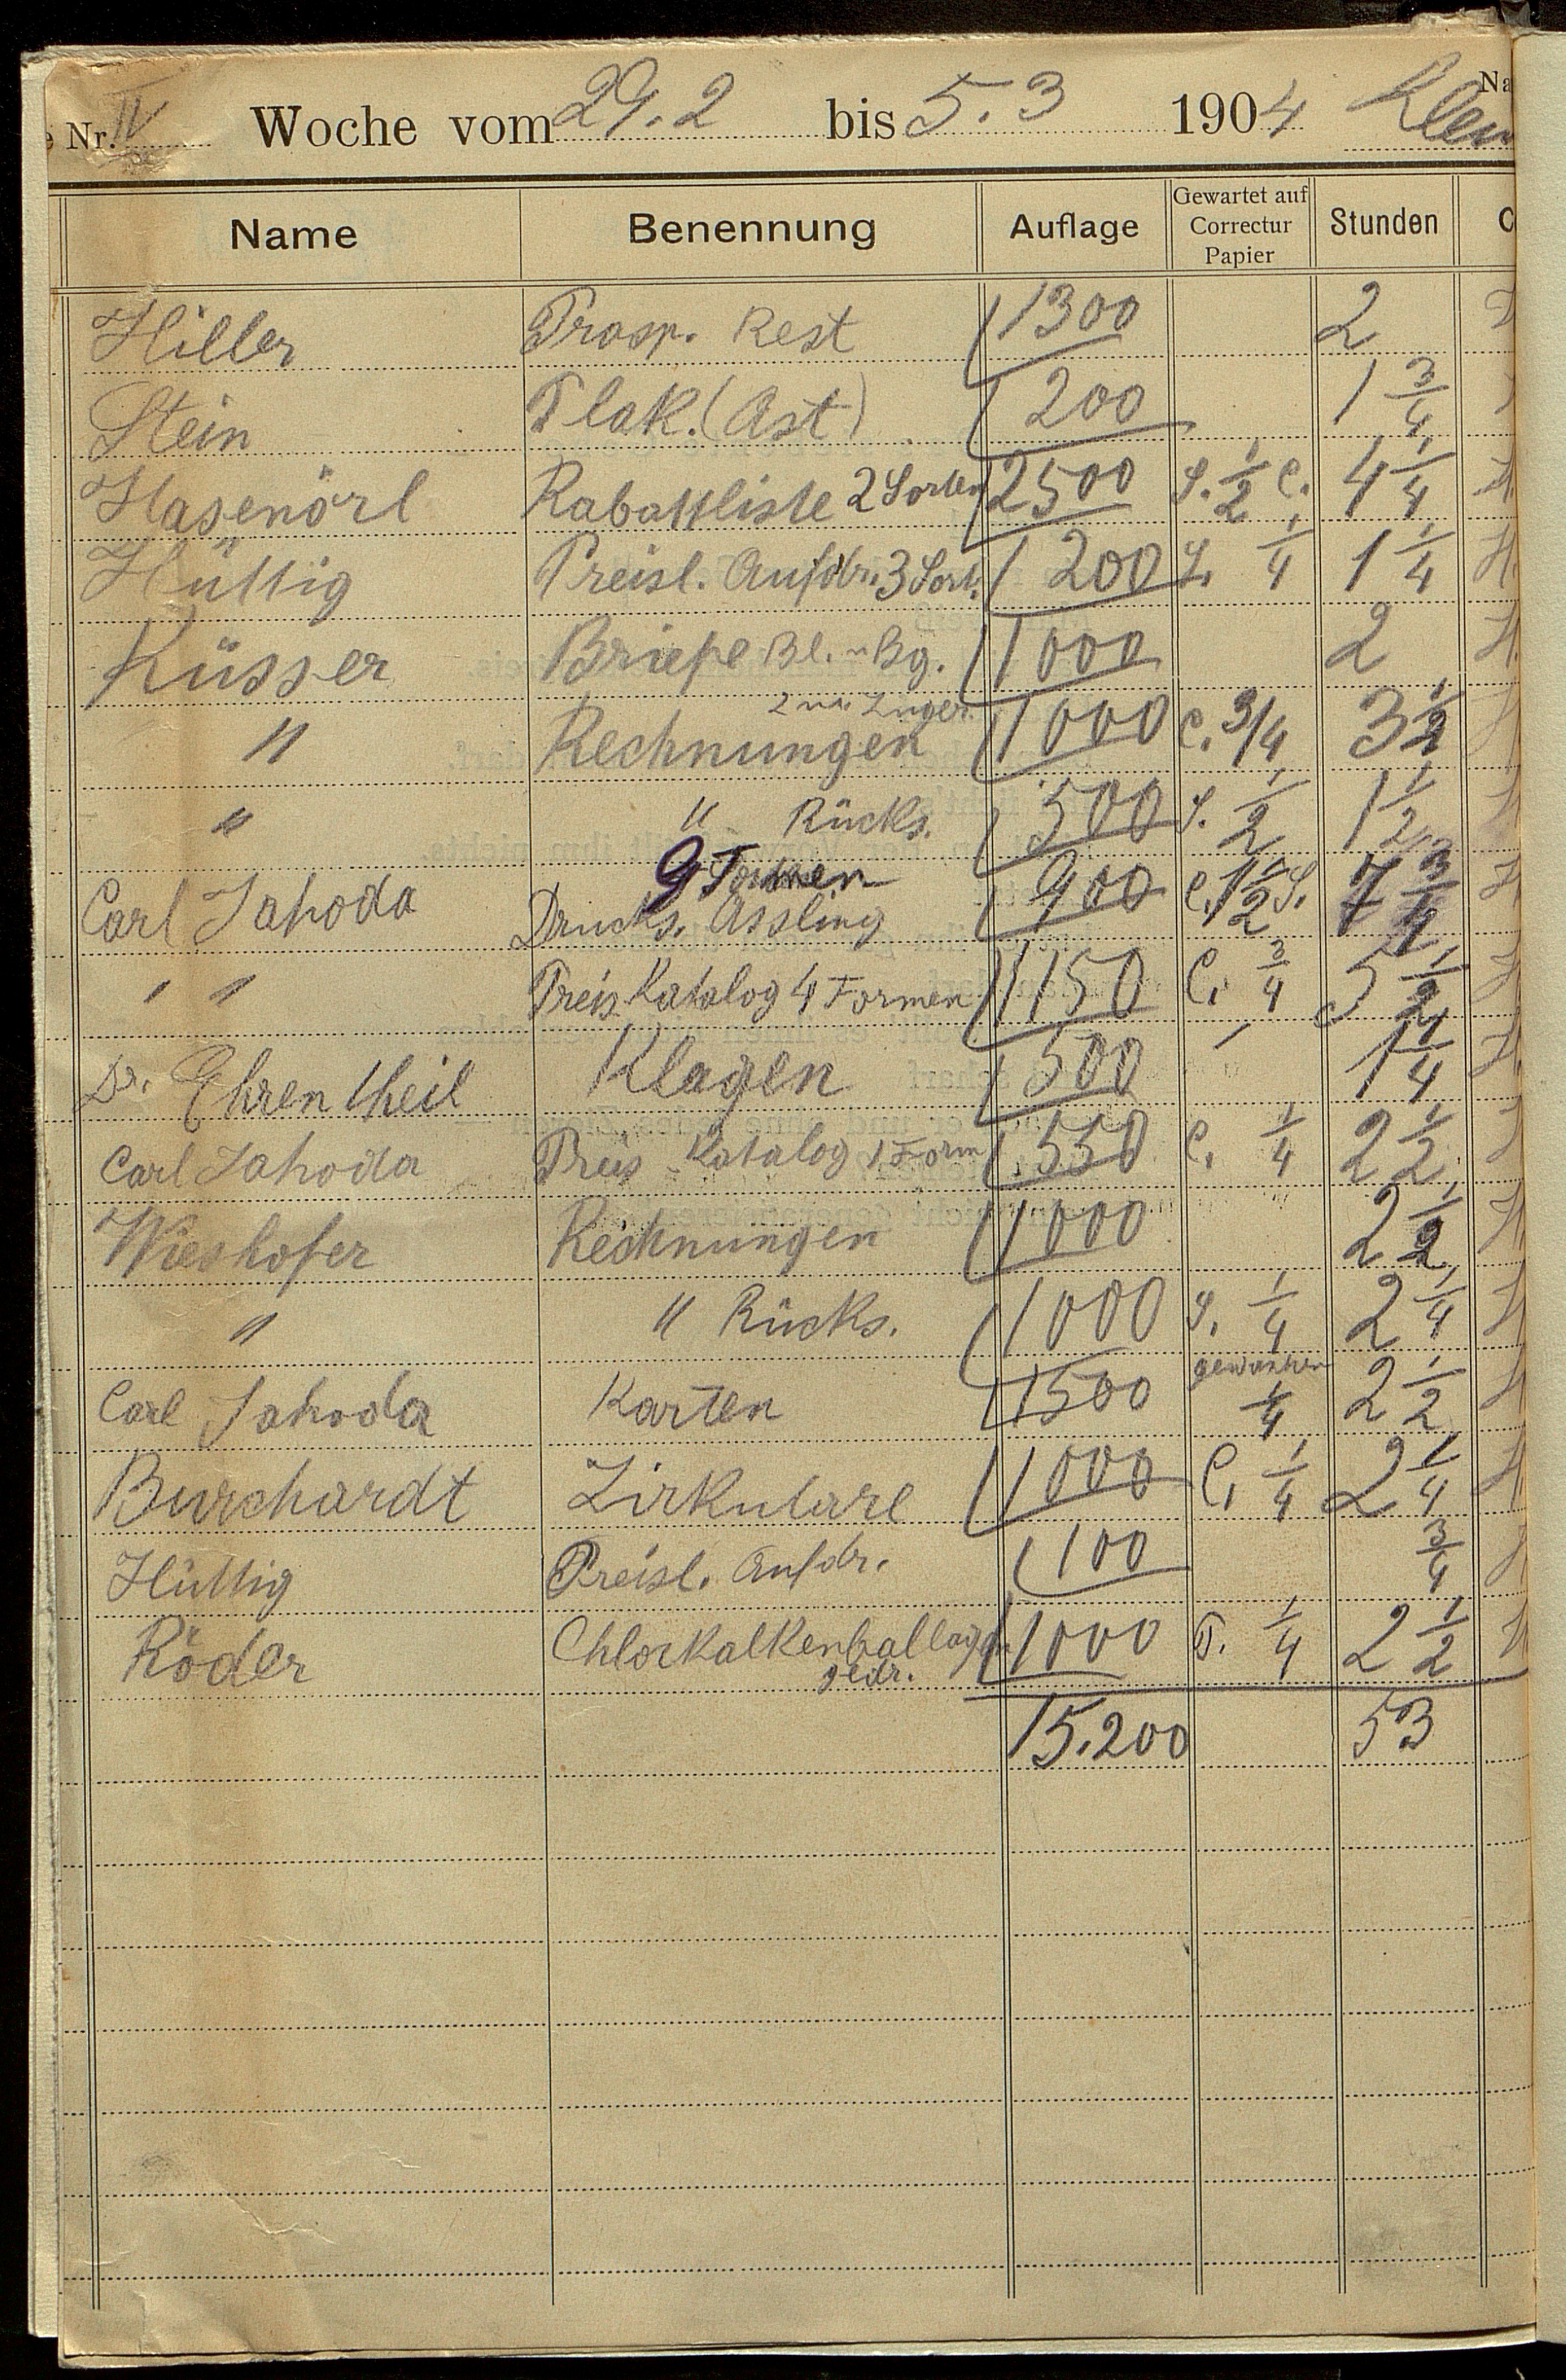 Nr. IV Woche vom 29.2 bis 5.3 1904 Klein
Na
Name Benennung Auflage Gewartet auf Correctur Papier Stunden C
Hiller Prosp. Rest 1300 2
Stein Plak. (Ast) 200 1 3/4
Hasenörl Rabattliste 2 Sorten 2500 S. 1/2 C. 4 1/4 H.
Hüttig Preisl. Aufdr. 3 Sort. 200 S. 1/4 1 1/4 H.
Küsser Briefe Bl. u Bg. 1000 2 H.
" Rechnungen 1000 C. 3/4 3 1/2 H
" " Rücks. 500 S. 1/2 1 1/2 H
9 Formen
Carl Jahoda Drucks. Assling 900 C. 1 1/2 S. 7 3/4 H
" " Preis Katalog 4 Formen 1150 C. 3/4 5 1/2 H
Dr. Ehrentheil Klagen 500 1 1/4 H.
Carl Jahoda Preis-Katalog 1 Form 550 C. 1/4 2 1/2
Wieshofer Rechnungen 1000 2 1/2 H
" " Rücks. 1000 S. 1/4 2 1/4 H
Carl Jahoda Karten 1500 gewaschen 1/4 2 1/2 H
Burchardt Zirkulare 1000 C. 1/4 2 1/4 H
Hüttig Preisl. Aufdr. 100 3/4 H
Röder Chlorkalkenballagen 1000 T. 1/4 2 1/2 H
gedr.
15.200 53